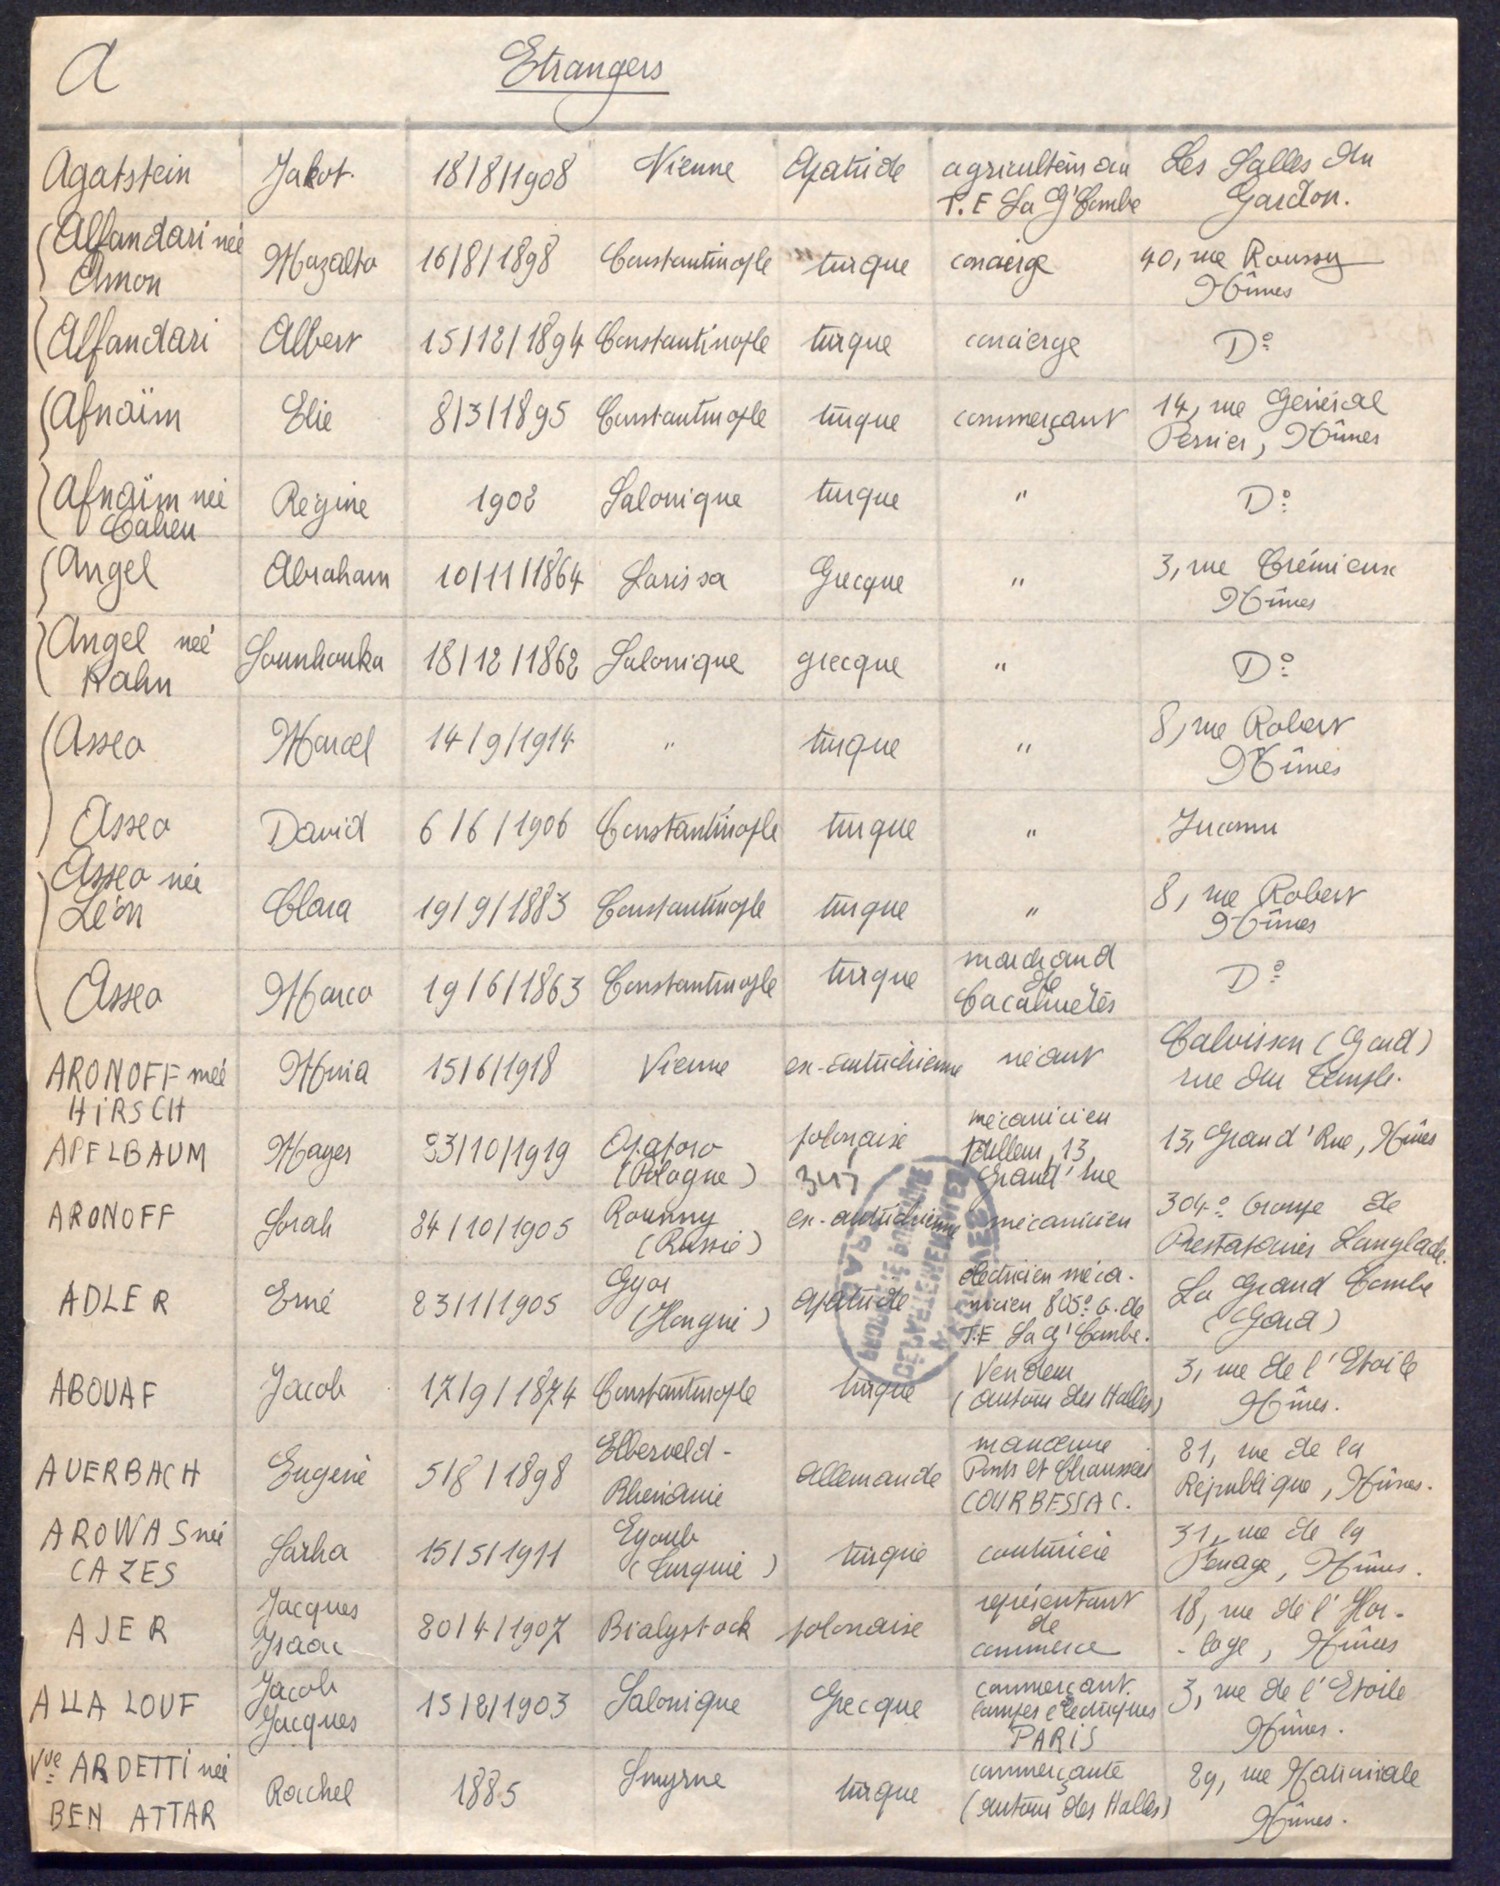 A
Etrangers
Agatstein Jakob 18/8/1908 Vienne Apatride agriculteur au T.E La Gd'Combe Les Salles du Gardon.
Alfandari née Amon Mazalto 16/8/1898 Constantinople turque concierge 40, rue Roussy Nîmes
Alfandari Albert 15/12/1894 Constantinople turque concierge D°
Afnaïm Elie 8/3/1895 Constantinople turque commerçant 14, rue Général Perrier, Nîmes
Afnaïm née Cahen Régine 1902 Salonique turque " D°
Angel Abraham 10/11/1864 Larissa Grecque " 3, rue Crémieux Nîmes
Angel née Kahn Sounhouka 18/12/1862 Salonique grecque " D°
Asseo Marcel 14/9/1914 " turque " 8, rue Robert Nîmes
Asseo David 6/6/1906 Constantinople turque " Inconnu
Asseo née Léon Clara 19/9/1883 Constantinople turque " 8, rue Robert Nîmes
Asseo Marco 19/6/1863 Constantinople turque marchand de Cacahuètes D°
ARONOFF née HIRSCH Mnia 15/6/1918 Vienne ex-autrichienne néant Calvisson (Gard) rue du Temple.
APELBAUM Mayer 23/10/1919 (Pologne) polonaise 347 mécanicien 13, Grand' Rue 13, Grand' Rue, Nîmes
ARONOFF Srah 24/10/1905 Rounny (Russie) ex-autrichienne mécanicien 304° Groupe de Prestataires Langlade.
ADLER Erné 23/1/1905 Gyor (Hongrie) apatride électricien mécanicien 805° G. de T.E La Gd'Combe. La Grand Combe (Gard)
ABOUAF Jacob 17/9/1874 Constantinople turque Vendeur (autour des Halles) 3, rue de l'Etoile Nîmes.
AUERBACH Eugène 5/8/1898 Elberveld - Rhénanie Allemande manœuvre Ponts et Chaussées COURBESSAC. 21, rue de la République, Nîmes.
AROWAS née CAZES Sarha 15/5/1911 Eyoub (Turquie) turque couturière 31, rue de la Nîmes.
AJER Jacques Isaac 20/4/1907 Bialystock polonaise représentant de commerce 18, rue de l'Hor-loge, Nîmes
ALLALOUF Jacob Jacques 15/2/1903 Salonique Grecque commerçant lampes électriques PARIS 3, rue de l'Etoile Nîmes.
Vve ARDETTI née BEN ATTAR Rachel 1885 Smyrne turque commerçante (autour des Halles) 29, rue Nationale Nîmes.